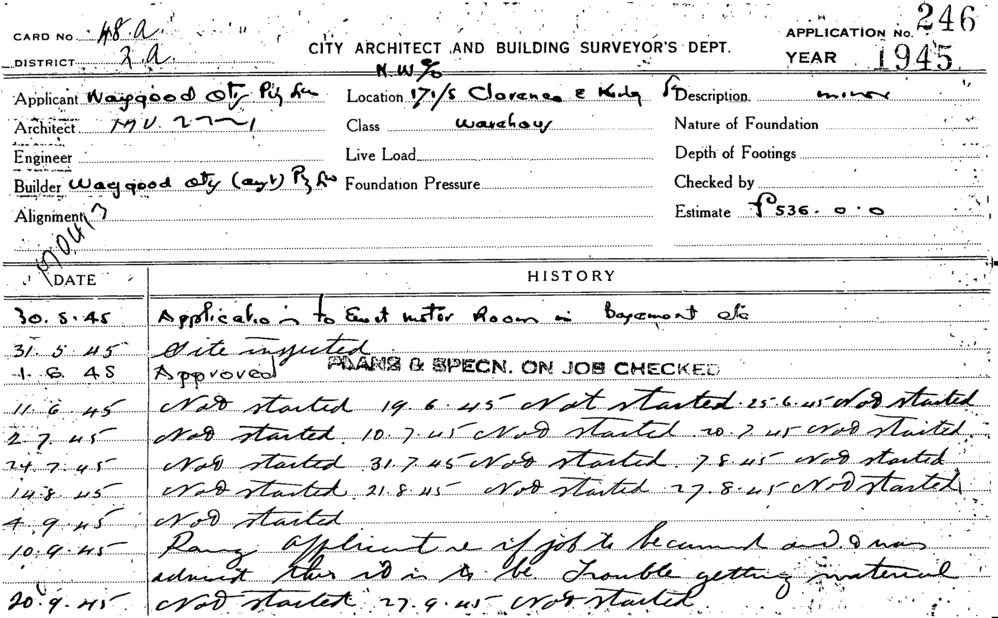 CARD No. 48.a. APPLICATION No. 246
DISTRICT 2a. CITY ARCHITECT AND BUILDING SURVEYOR'S DEPT. YEAR 1945
N.W %
Applicant Waygood Oty Pty Ltd Location 171/5 Clarence & King St Description minor
Architect MU. 2721 Class Warehous Nature of Foundation
Engineer Live Load Depth of Footings
Builder Waygood Oty (Aust) Pty Ltd Foundation Pressure Checked by
Alignment Estimate £536.0.0
DATE HISTORY
30.5.45 Application to Erect motor Room in Basement etc
31.5.45 Site inspected
1.6.45 Approved PLANS & SPECN. ON JOB CHECKED
11.6.45 Not started 19.6.45 Not started 25.6.45 Not started
2.7.45 Not started 10.7.45 Not started 20.7.45 Not started
24.7.45 Not started 31.7.45 Not started 7.8.45 Not started
14.8.45 Not started 21.8.45 Not started 27.8.45 Not started
4.9.45 Not started
10.9.45 Rang applicant re if job to be and was
this is to be. Trouble getting material
20.9.45 Not started 27.9.45 Not started